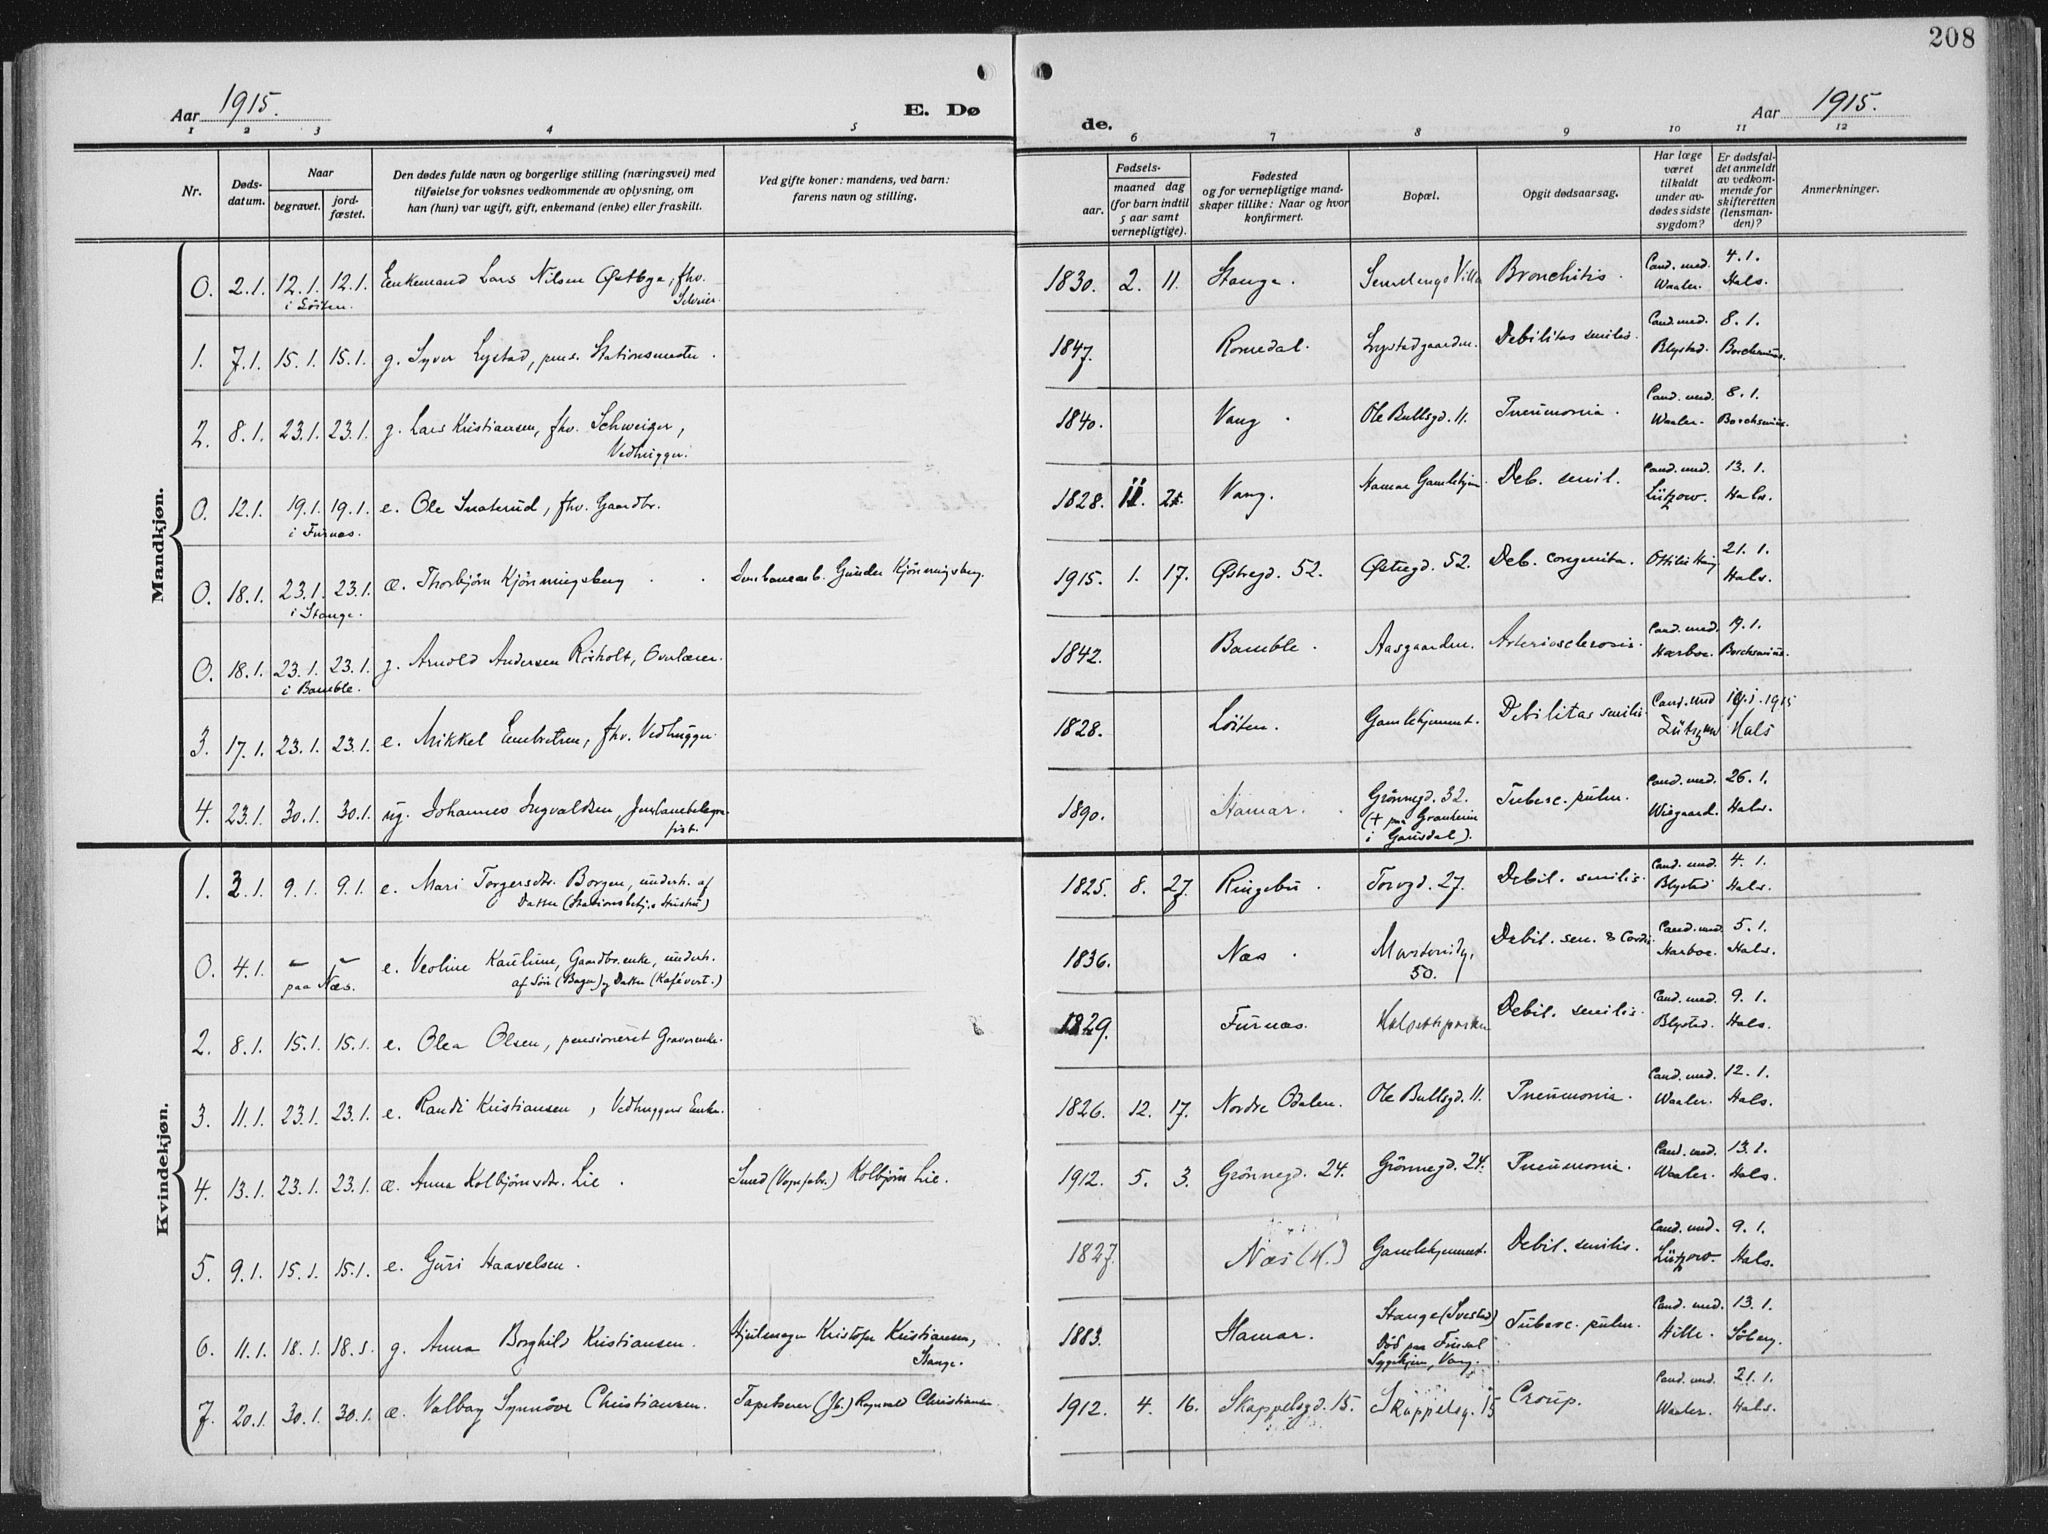 208
Aar 1915.
E. Dø
de.
Aar 1915.
1 2 3 4 5 6 7 8 9 10 11 12
Nr.
Døds-
datum.
Naar
begravet.
jord-
fæstet.
Den dødes fulde navn og borgerlige stilling (næringsvei) med
tilføielse for voksnes vedkommende av oplysning, om
han (hun) var ugift, gift, enkemand (enke) eller fraskilt.
Ved gifte koner: mandens, ved barn:
farens navn og stilling.
Fødsels-
aar.
maaned dag
(for barn indtil
5 aar samt
vernepligtige).
Fødested
og for vernepligtige mand-
skaper tillike: Naar og hvor
konfirmert.
Bopæl.
Opgit dødsaarsag.
Har læge
været
tilkaldt
under av-
dødes sidste
sygdom?
Er dødsfal-
det anmeldt
av vedkom-
mende for
skifteretten
(lensman-
den)?
Anmerkninger.
Mandkjøn.
0. 2.1. 12.1. 12.1. Enkemand Lars Nilsen Østbye, fhv. 1830. 2. 11. Stange. Bronchitis. Cand. med. 4.1.
i Löiten. Waaler. Hals.
1. 7.1. 15.1. 15.1. g. Syver Lystad, pens. Stationsmester. 1847. Romedal. Lystadgaarden. Debilitas senilis. Cand. med. 8.1.
Blystad. Borchsenius.
2. 8.1. 23.1. 23.1. g. Lars Kristiansen, fhv. Schweizer, 1840. Vang. Ole Bullsgd. 11. Pneumonia. Cand. med. 8.1.
Vedhugger. Waaler. Borchsenius.
0. 12.1. 19.1. 19.1. e. Ole Snaterud, fhv. Gaardbr. 1828. 11. Vang. Hamar Gamlehjem. Deb. senil. Cand. med. 13.1.
i Furnes. Lützow. Hals.
0. 18.1. 23.1. 23.1. æ. Thorbjörn Kjönningsberg. Jernbanearb. Gunder Kjönningsberg. 1915. 1. 17. Østregd. 52. Østregd. 52. Deb. congenita. 21.1.
i Stange. Hals.
0. 18.1. 23.1. 23.1. g. Arnold Andersen Riisholt, Overlærer. 1842. Bamble. Aasgaarden. Arteriosclerosis. Cand. med.
i Bamble. Harboe. Borchsenius.
3. 17.1. 23.1. 23.1. e. Mikkel Embretsen, fhv. Vedhugger. 1828. Löiten. Gamlehjemmet. Debilitas senilis. Cand. med 19.1.1915
Lützow Hals
4. 23.1. 30.1. 30.1. ug. Johannes Ingvaldsen, Jernbanetelegra- 1890. Hamar. Grönnegd. 32. Tuberc. pulm. Cand. med. 26.1.
fist. (+ paa Granheim Wisgaard. Hals.
i Gausdal).
Kvindekjøn.
1. 2.1. 9.1. 9.1. e. Mari Torgersdtr. Borgen, underh. af 1825. 8. 27. Ringebu. Torvgd. 27. Debil. senilis. Cand. med. 4.1.
Datter (Stationsbetj.s Hustru) Blystad Hals.
0. 4.1. – – e. Veoline Kaulum, Gaardbr.enke, underh. 1836. Næs. Debil. sen. & Cordis Cand. med. 5.1.
paa Næs. af Sön (Bager) og Datter (Kafévert.) 50. Harboe. Hals.
2. 8.1. 15.1. 15.1. e. Olea Olsen, pensioneret Graverenke. 1829. Furnes. Debil. senilis. Cand. med. 9.1.
Blystad. Hals.
3. 11.1. 23.1. 23.1. e. Randi Kristiansen, Vedhuggers Enke. 1826. 12. 17. Nordre Odalen. Ole Bullsgd. 11. Pneumonia. Cand. med. 12.1.
Waaler. Hals.
4. 13.1. 23.1. 23.1. æ. Anna Kolbjörnsdtr. Lie. Smed (Vognfabr.) Kolbjörn Lie. 1912. 5. 3. Grönnegd. 24. Grönnegd. 24. Pneumonia. Cand. med. 13.1.
Waaler. Hals.
5. 9.1. 15.1. 15.1. e. Guri Haavelsen. 1827. Næs (H.) Gamlehjemmet. Debil. senilis. Cand. med. 9.1.
Lützow. Hals.
6. 11.1. 18.1. 18.1. g. Anna Borghild Kristiansen. Hjulmager Kristofer Kristiansen, 1883. Hamar. Stange (Svestad) Tuberc. pulm. Cand. med. 13.1.
Stange. Död paa Finsal Hille. Söberg.
Sygehjem, Vang.
7. 20.1. 30.1. 30.1. æ. Valborg Synnöve Christiansen. Tapetserer (Jb.) Ragnvald Christiansen 1912. 4. 16. Skappelsgd. 15. Skappelsg. 15 Croup. Cand. med. 21.1.
Waaler. Hals.